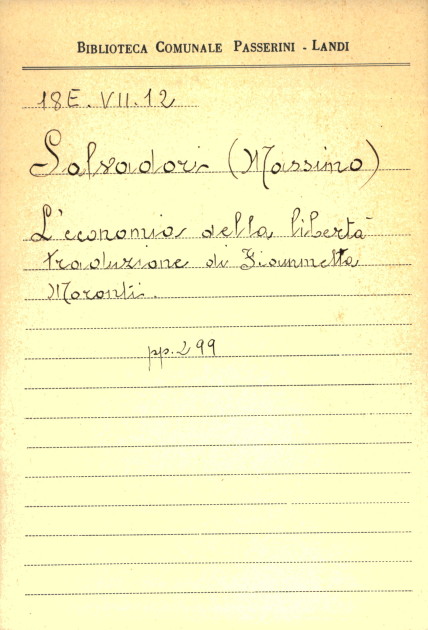 BIBLIOTECA COMUNALE PASSERINI - LANDI
18E. VII. 12
Salvadori (Massimo)
L'economia della libertà
traduzione di Fiammetta
Moronti.
pp. 299